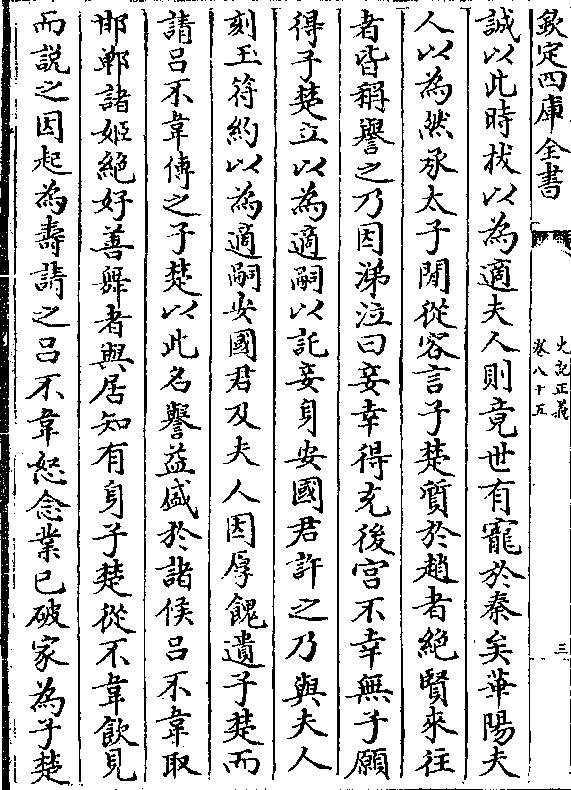 欽定四庫全書
史記正義
卷八十五
三
誠以此時拔以為適夫人則竟世有寵於秦矣華陽夫
人以為然承太子閒從容言子楚質於趙者絕賢來往
者皆稱譽之乃因涕泣曰妾幸得充後宮不幸無子願
得子楚立以為適嗣以託妾身安國君許之乃與夫人
刻玉符約以為適嗣安國君及夫人因厚餽遺子楚而
請呂不韋傅之子楚以此名譽益盛於諸侯呂不韋取
邯鄲諸姬絕好善舞者與居知有身子楚從不韋飲見
而說之因起為壽請之呂不韋怒念業已破家為子楚